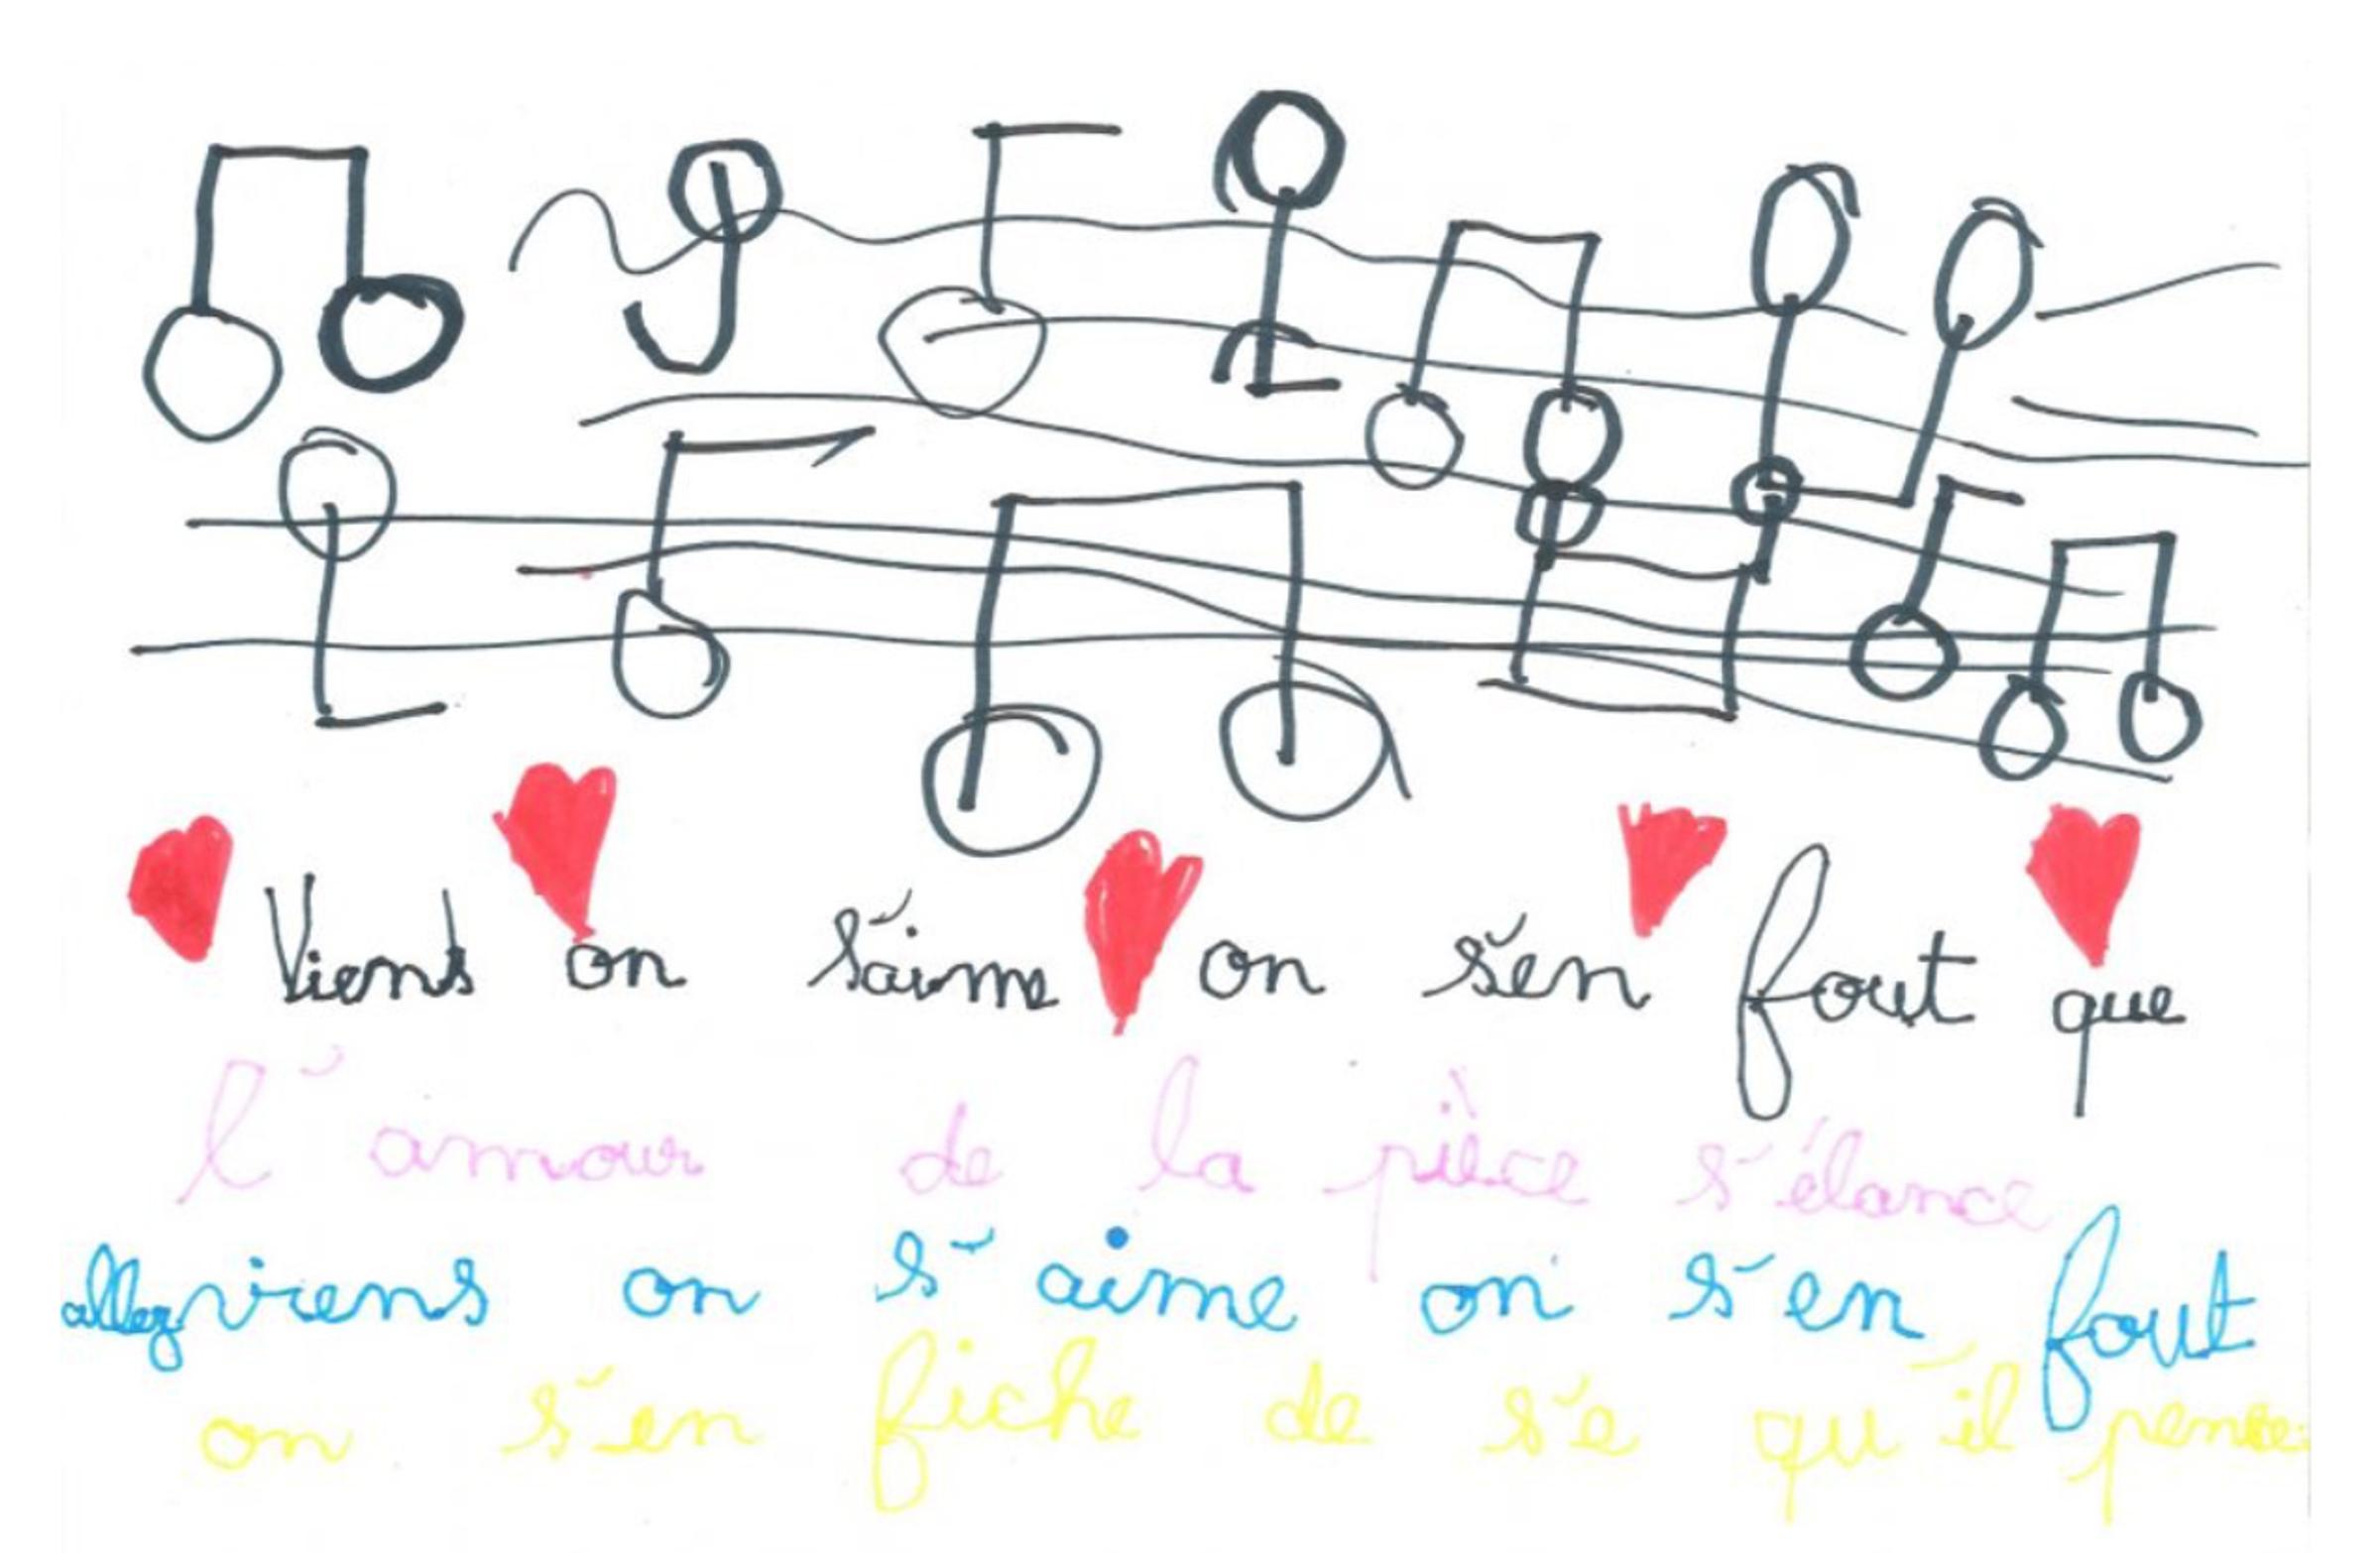 Viens on s'aime on s'en fout que
l'amour de la pièce s'élance
allez viens on s'aime on s'en fout
on s'en fiche de s'e qu'il pense